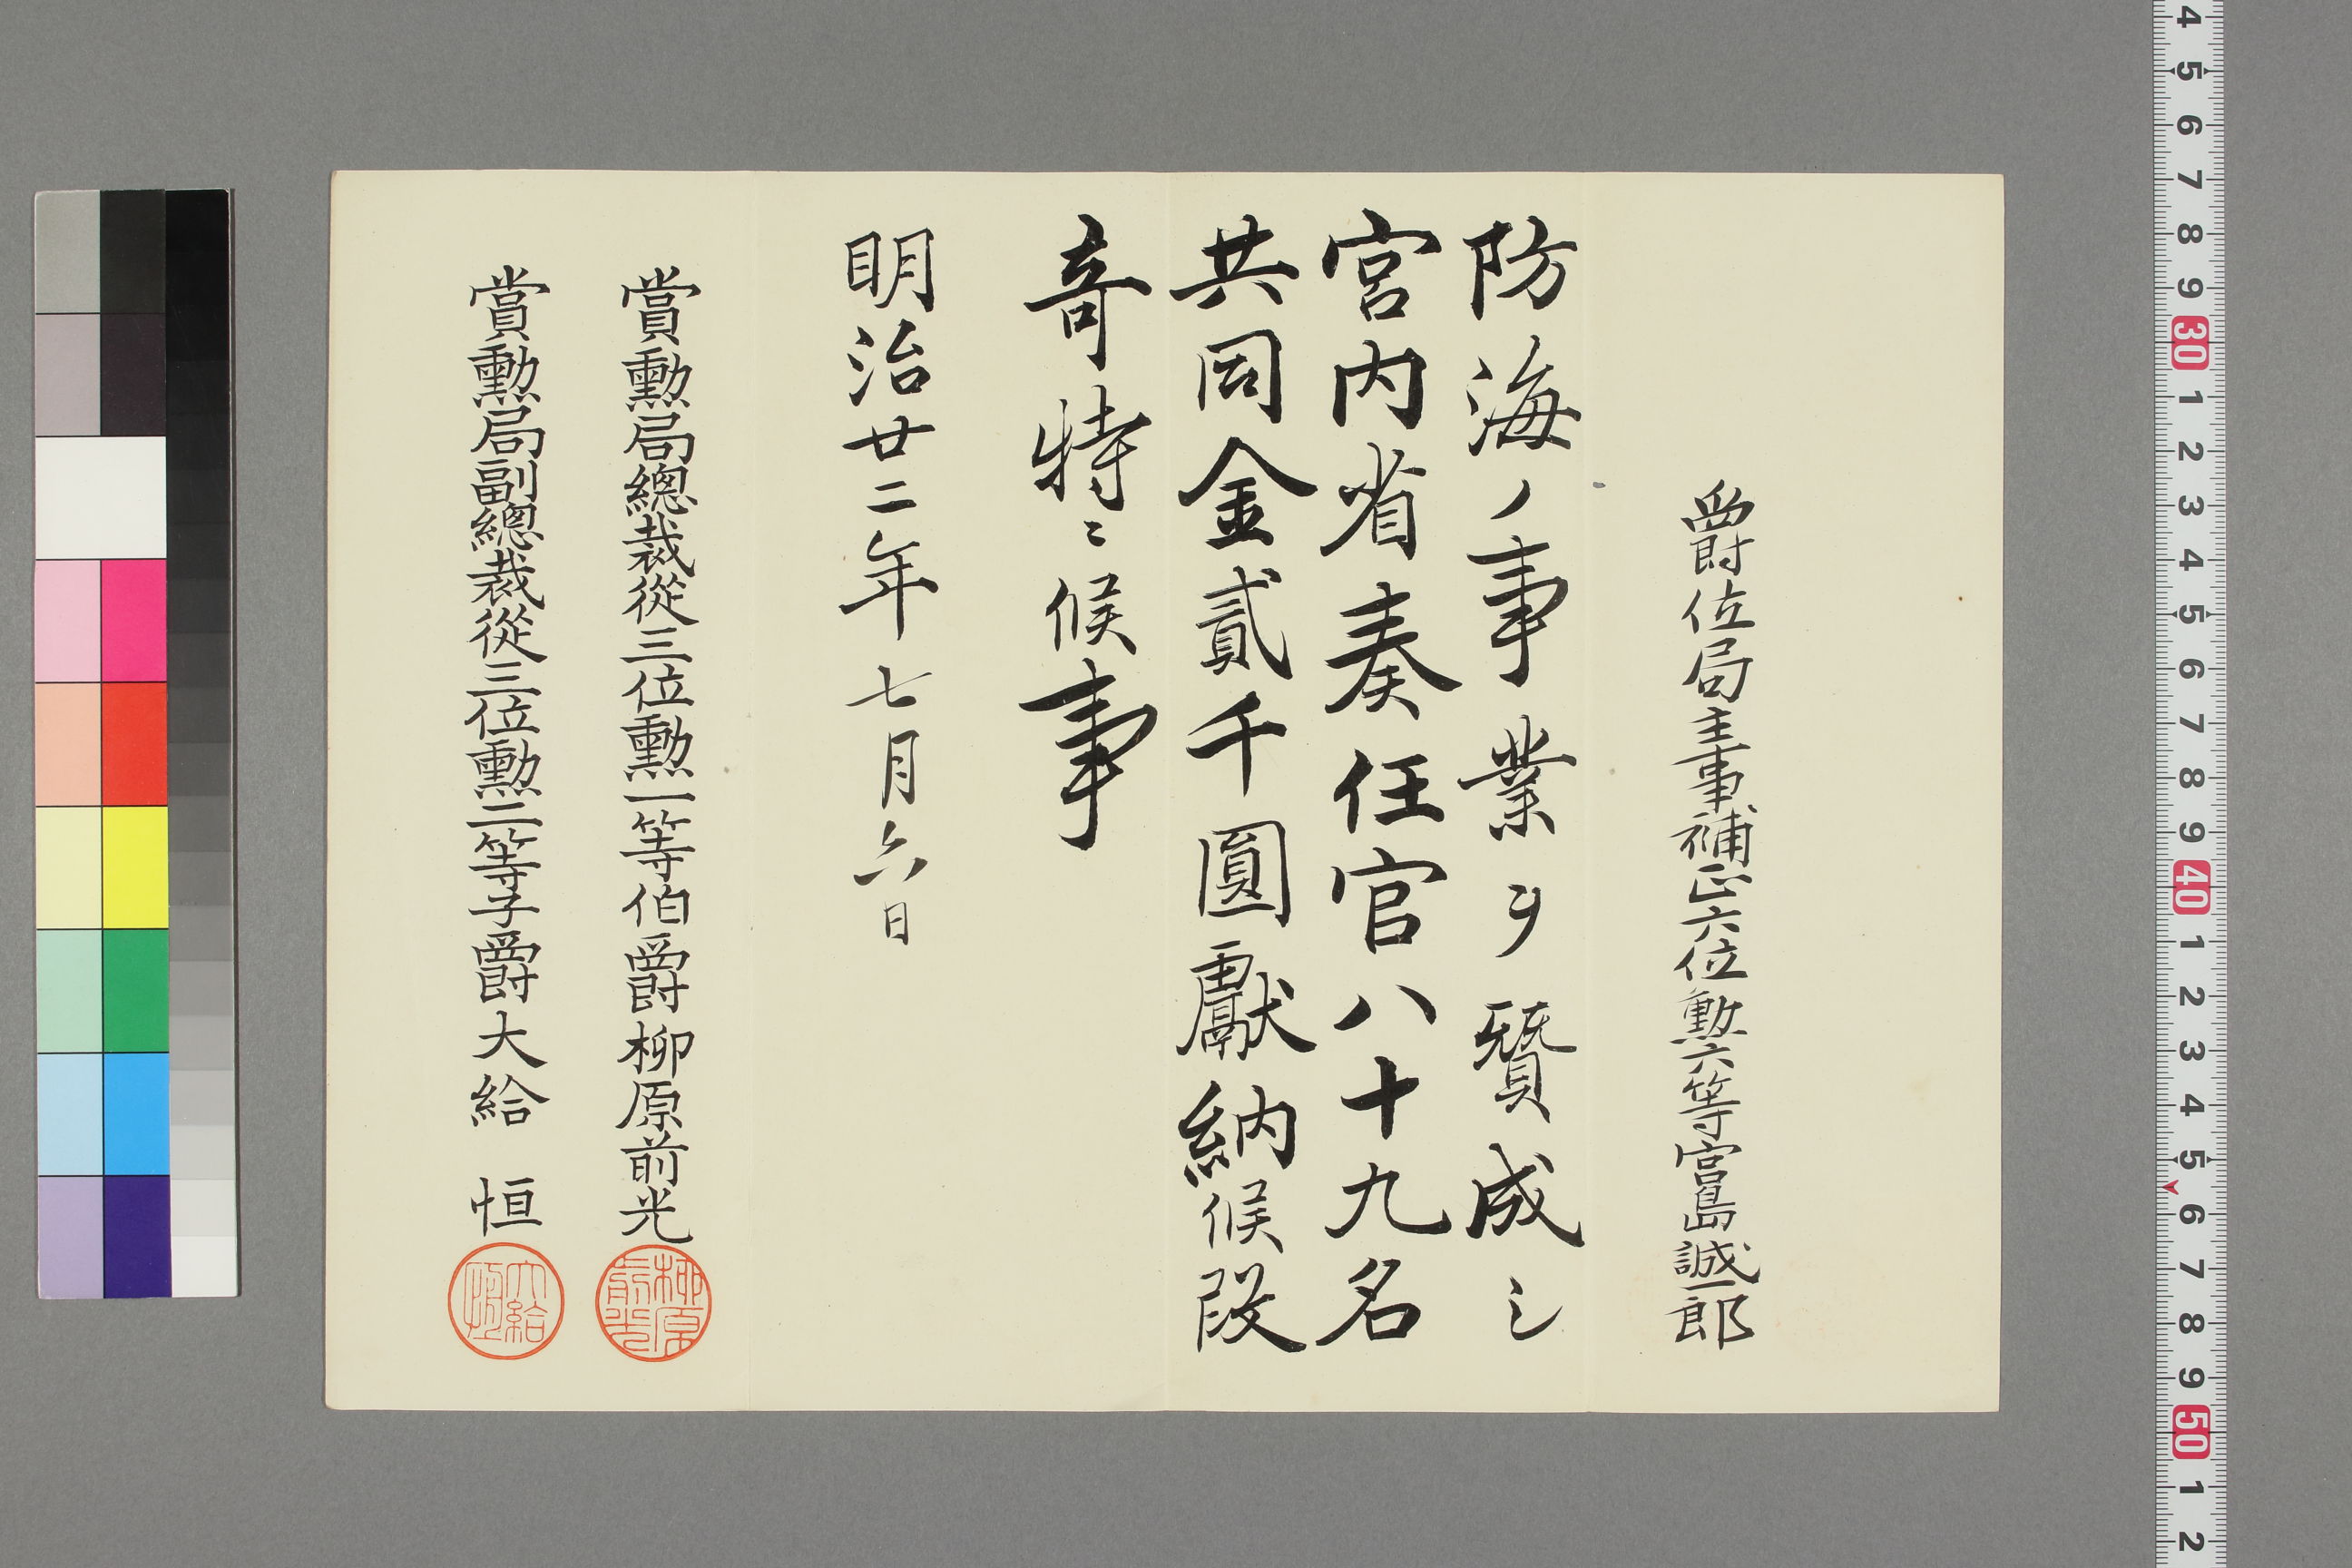 爵位局主事補正六位勲六等宮島誠一郎
防海ノ事業ヲ賛成シ
宮内省奏任官八十九名
共同金貳千圓獻納候段
奇特ニ候事
明治廿二年七月六日
賞勳局總裁從三位勳一等伯爵柳原前光
柳原前光
賞勳局副總裁從三位勳二等子爵大給 恒
大給恒
4 5 6 7 8 9 30 1 2 3 4 5 6 7 8 9 40 1 2 3 4 5 6 7 8 9 50 1 2